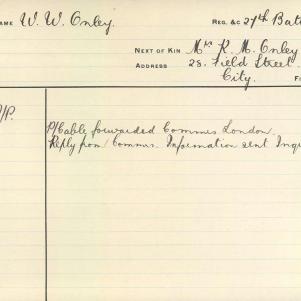 NAME W. W. Onley REG. &c 27th Batt
NEXT OF KIN Mrs R. M. Onley
ADDRESS 28. Field Street.
City. F
/P.
P/Cable forwarded Commns London.
Reply from Commns. Information sent Inq